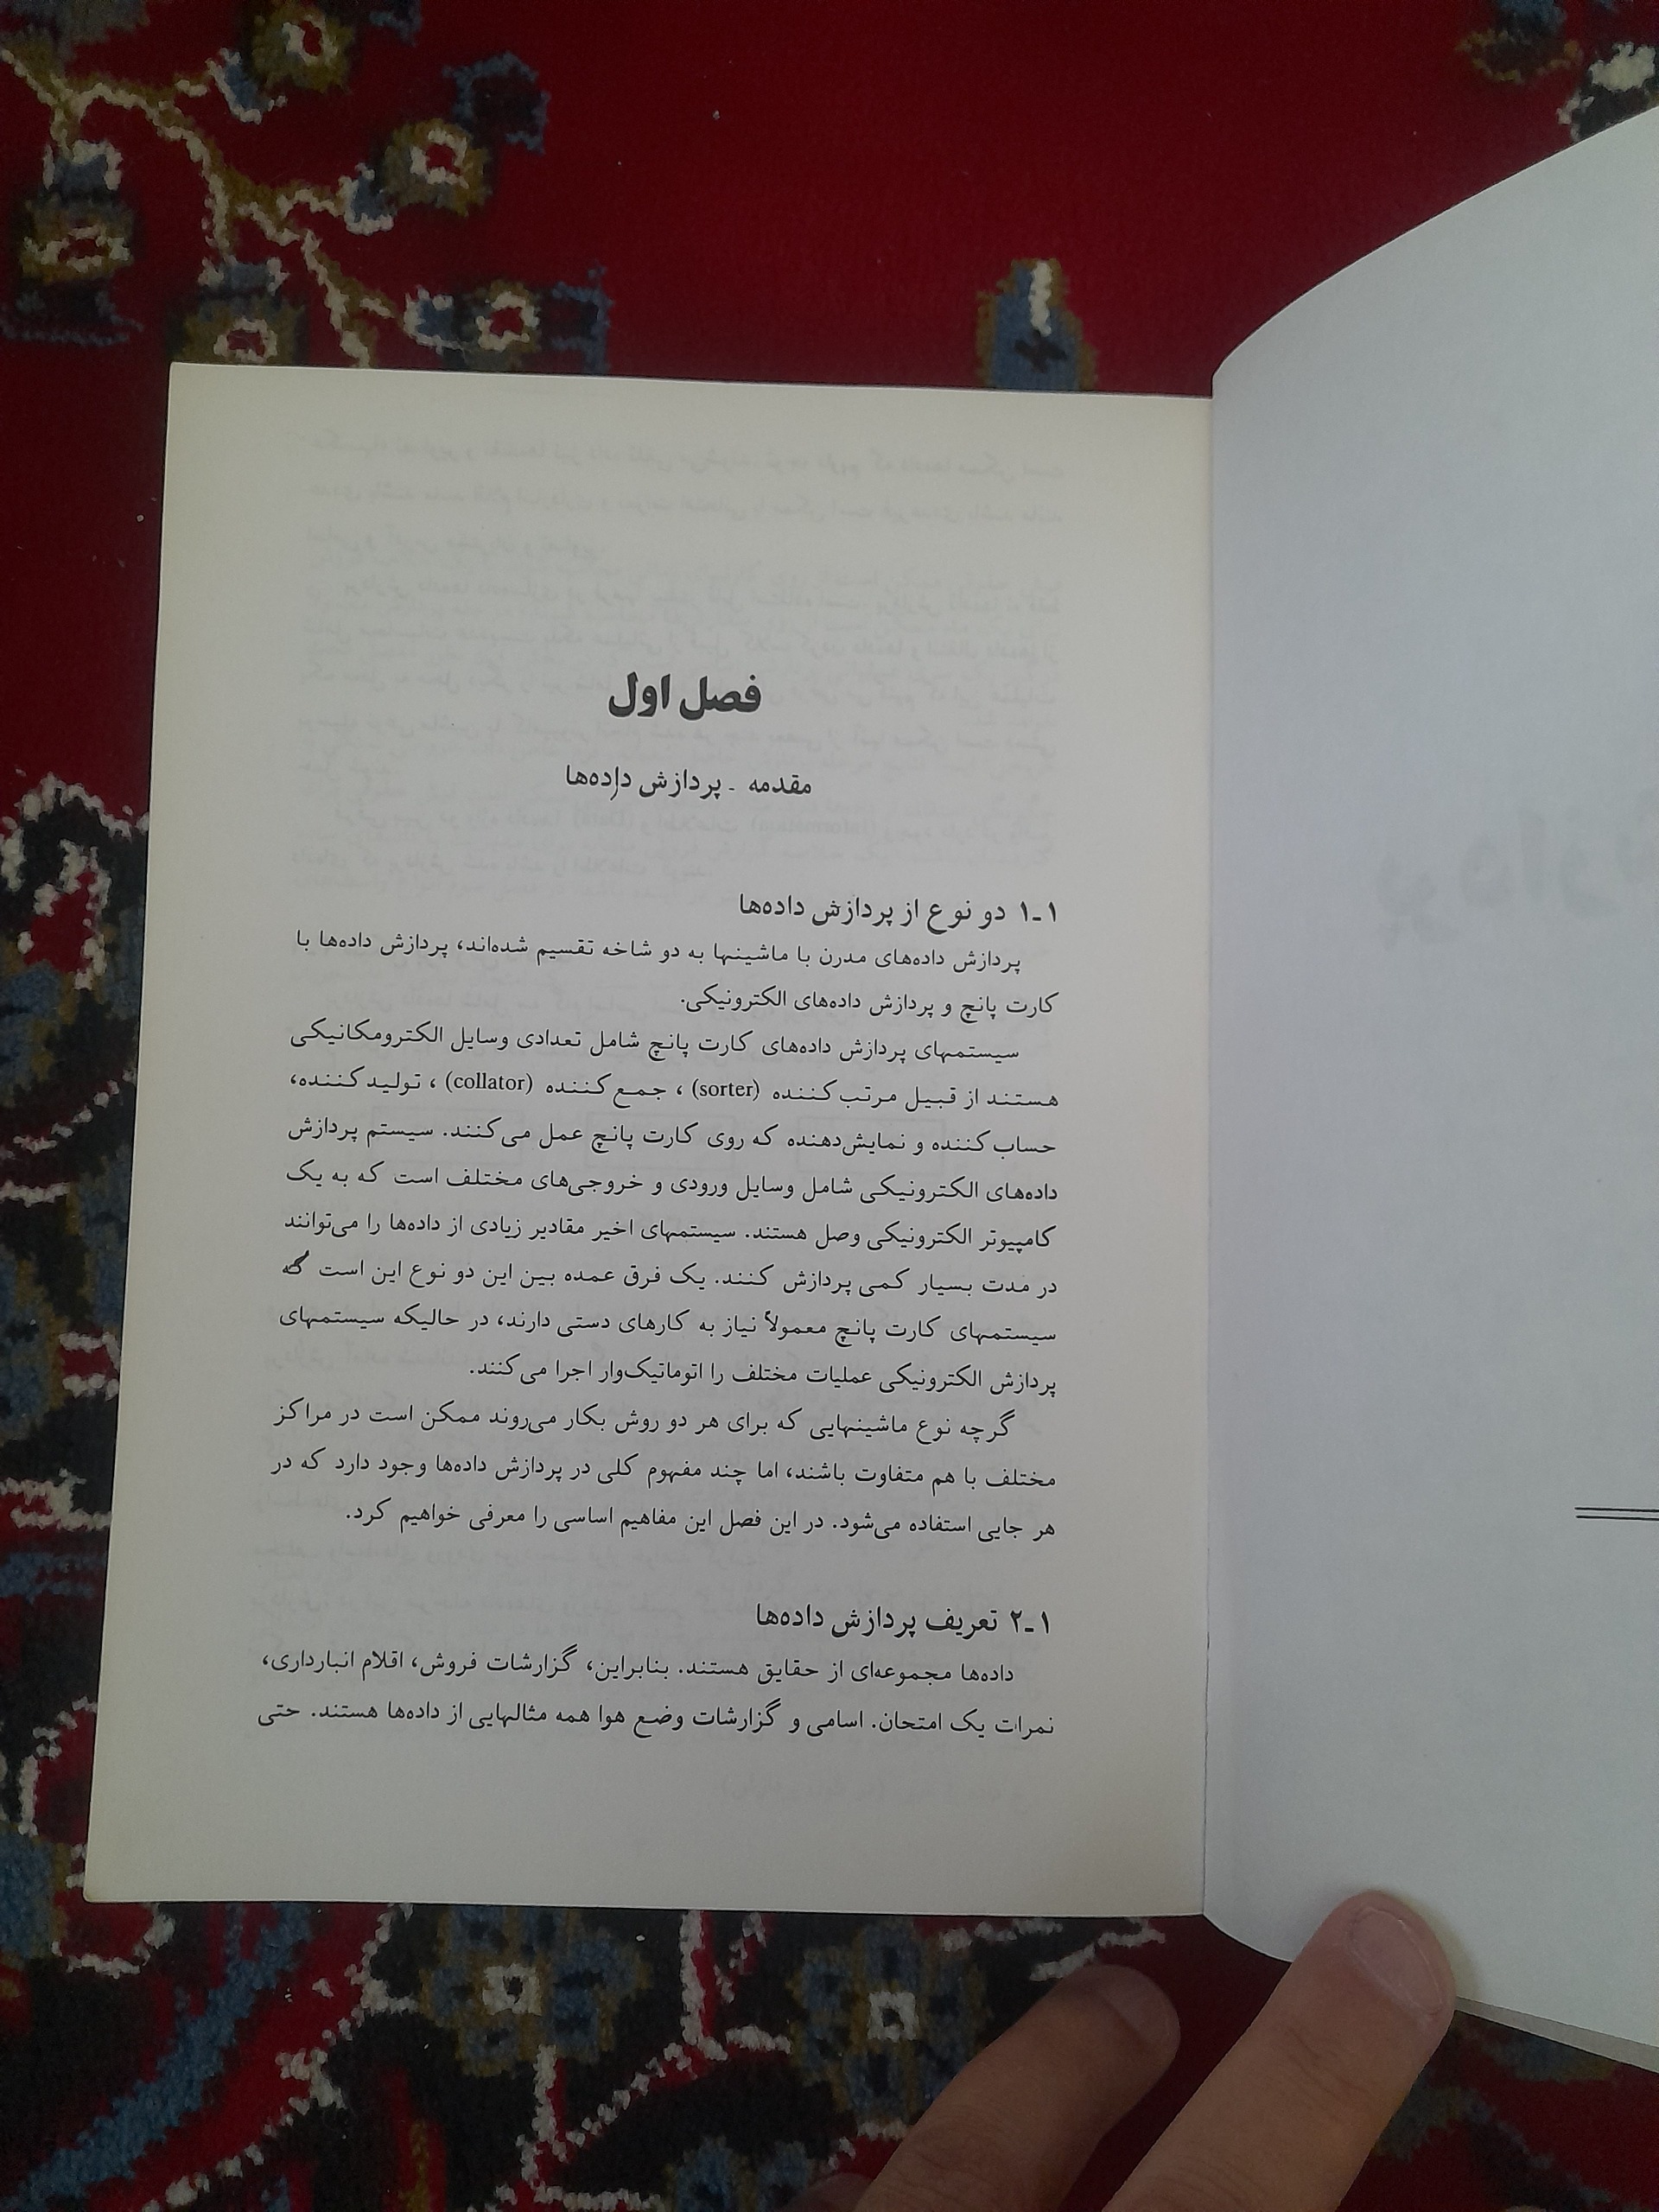 فصل اول
مقدمه - پردازش داده‌ها
۱-۱ دو نوع از پردازش داده‌ها
پردازش داده‌های مدرن با ماشینها به دو شاخه تقسیم شده‌اند، پردازش داده‌ها با
کارت پانچ و پردازش داده‌های الکترونیکی.
سیستمهای پردازش داده‌های کارت پانچ شامل تعدادی وسایل الکترومکانیکی
هستند از قبیل مرتب‌کننده (sorter) ، جمع‌کننده (collator) ، تولیدکننده،
حساب‌کننده و نمایش‌دهنده که روی کارت پانچ عمل می‌کنند. سیستم پردازش
داده‌های الکترونیکی شامل وسایل ورودی و خروجی‌های مختلف است که به یک
کامپیوتر الکترونیکی وصل هستند. سیستمهای اخیر مقادیر زیادی از داده‌ها را می‌توانند
در مدت بسیار کمی پردازش کنند. یک فرق عمده بین این دو نوع این است که
سیستمهای کارت پانچ معمولاً نیاز به کارهای دستی دارند، در حالیکه سیستمهای
پردازش الکترونیکی عملیات مختلف را اتوماتیک‌وار اجرا می‌کنند.
گرچه نوع ماشینهایی که برای هر دو روش بکار می‌روند ممکن است در مراکز
مختلف با هم متفاوت باشند، اما چند مفهوم کلی در پردازش داده‌ها وجود دارد که در
هر جایی استفاده می‌شود. در این فصل این مفاهیم اساسی را معرفی خواهیم کرد.
۲-۱ تعریف پردازش داده‌ها
داده‌ها مجموعه‌ای از حقایق هستند. بنابراین، گزارشات فروش، اقلام انبارداری،
نمرات یک امتحان. اسامی و گزارشات وضع هوا همه مثالهایی از داده‌ها هستند. حتی